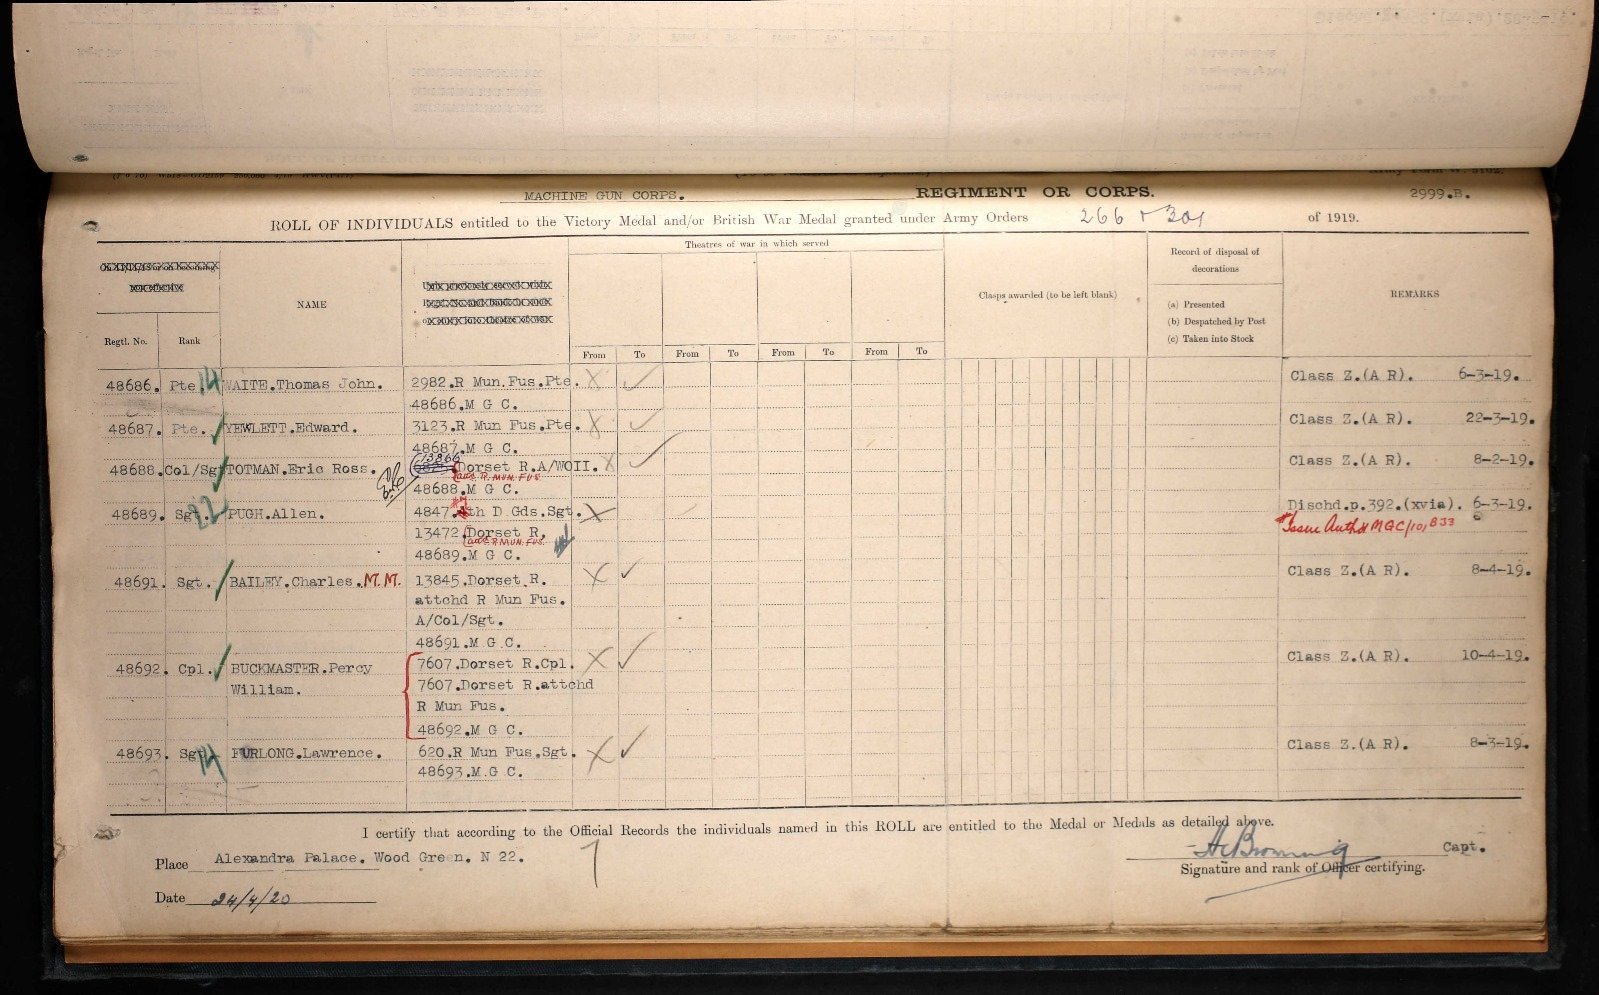 MACHINE GUN CORPS. REGIMENT OR CORPS. 2999.B.
ROLL OF INDIVIDUALS entitled to the Victory Medal and/or British War Medal granted under Army Orders 266 + 301 of 1919.
Regtl. No. Rank NAME Theatres of war in which served Clasps awarded (to be left blank) Record of disposal of decorations REMARKS
(a) Presented
(b) Despatched by Post
(c) Taken into Stock
From To From To From To From To
48686. Pte. 14 WAITE.Thomas John. 2982.R Mun.Fus.Pte. Class Z.(A R). 6-3-19.
48686.M G C.
48687. Pte. YEWLETT.Edward. 3123.R Mun Fus.Pte. Class Z.(A R). 22-3-19.
48687.M G C.
13866
48688.Col/Sgt TOTMAN.Eric Ross. Dorset R.A/WOII. Class Z.(A R). 8-2-19.
R. MUN. FUS
48688.M G C.
48689. Sgt. 22 PUGH.Allen. 4847. th D Gds.Sgt. Dischd.p.392.(xvia). 6-3-19.
Issue Auth MGC/101833
13472.Dorset R.
R MUN. FUS.
48689.M G C.
48691. Sgt. BAILEY.Charles. M.M. 13845.Dorset R. Class Z.(A R). 8-4-19.
attchd R Mun Fus.
A/Col/Sgt.
48691.M G C.
48692. Cpl. BUCKMASTER.Percy 7607.Dorset R.Cpl. Class Z.(A R). 10-4-19.
William. 7607.Dorset R.attchd
R Mun Fus.
48692.M G C.
48693. Sgt. 14 FURLONG.Lawrence. 620.R Mun Fus.Sgt. Class Z.(A R). 8-3-19.
48693.M.G C.
I certify that according to the Official Records the individuals named in this ROLL are entitled to the Medal or Medals as detailed above.
Place Alexandra Palace. Wood Green. N 22. Capt.
Signature and rank of Officer certifying.
Date 24/4/20